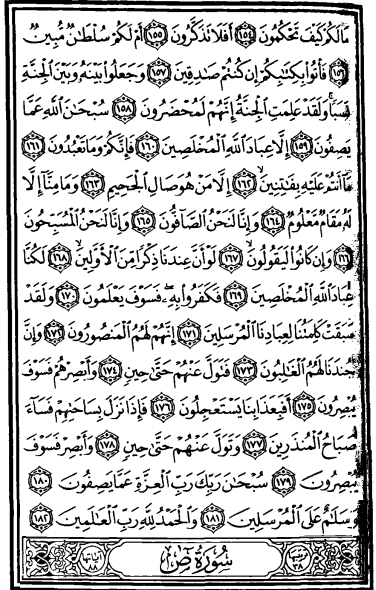 مَالَكُمْ كَيْفَ تَحْكُمُونَ ۝١٥٤ أَفَلَا تَذَكَّرُونَ ۝١٥٥ أَمْ لَكُمْ سُلْطَٰنٌ مُّبِينٌ
۝١٥٦ فَأْتُوا۟ بِكِتَٰبِكُمْ إِن كُنتُمْ صَٰدِقِينَ ۝١٥٧ وَجَعَلُوا۟ بَيْنَهُۥ وَبَيْنَ ٱلْجِنَّةِ
نَسَبًا ۚ وَلَقَدْ عَلِمَتِ ٱلْجِنَّةُ إِنَّهُمْ لَمُحْضَرُونَ ۝١٥٨ سُبْحَٰنَ ٱللَّهِ عَمَّا
يَصِفُونَ ۝١٥٩ إِلَّا عِبَادَ ٱللَّهِ ٱلْمُخْلَصِينَ ۝١٦٠ فَإِنَّكُمْ وَمَا تَعْبُدُونَ ۝١٦١
مَآ أَنتُمْ عَلَيْهِ بِفَٰتِنِينَ ۝١٦٢ إِلَّا مَنْ هُوَ صَالِ ٱلْجَحِيمِ ۝١٦٣ وَمَا مِنَّآ إِلَّا
لَهُۥ مَقَامٌ مَّعْلُومٌ ۝١٦٤ وَإِنَّا لَنَحْنُ ٱلصَّآفُّونَ ۝١٦٥ وَإِنَّا لَنَحْنُ ٱلْمُسَبِّحُونَ
۝١٦٦ وَإِن كَانُوا۟ لَيَقُولُونَ ۝١٦٧ لَوْ أَنَّ عِندَنَا ذِكْرًا مِّنَ ٱلْأَوَّلِينَ ۝١٦٨ لَكُنَّا
عِبَادَ ٱللَّهِ ٱلْمُخْلَصِينَ ۝١٦٩ فَكَفَرُوا۟ بِهِۦ ۖ فَسَوْفَ يَعْلَمُونَ ۝١٧٠ وَلَقَدْ
سَبَقَتْ كَلِمَتُنَا لِعِبَادِنَا ٱلْمُرْسَلِينَ ۝١٧١ إِنَّهُمْ لَهُمُ ٱلْمَنصُورُونَ ۝١٧٢ وَإِنَّ
جُندَنَا لَهُمُ ٱلْغَٰلِبُونَ ۝١٧٣ فَتَوَلَّ عَنْهُمْ حَتَّىٰ حِينٍ ۝١٧٤ وَأَبْصِرْهُمْ فَسَوْفَ
يُبْصِرُونَ ۝١٧٥ أَفَبِعَذَابِنَا يَسْتَعْجِلُونَ ۝١٧٦ فَإِذَا نَزَلَ بِسَاحَتِهِمْ فَسَآءَ
صَبَاحُ ٱلْمُنذَرِينَ ۝١٧٧ وَتَوَلَّ عَنْهُمْ حَتَّىٰ حِينٍ ۝١٧٨ وَأَبْصِرْ فَسَوْفَ
يُبْصِرُونَ ۝١٧٩ سُبْحَٰنَ رَبِّكَ رَبِّ ٱلْعِزَّةِ عَمَّا يَصِفُونَ ۝١٨٠
وَسَلَٰمٌ عَلَى ٱلْمُرْسَلِينَ ۝١٨١ وَٱلْحَمْدُ لِلَّهِ رَبِّ ٱلْعَٰلَمِينَ ۝١٨٢
ترتيبها ٣٨ سُورَةُ صٓ آياتها ٨٨